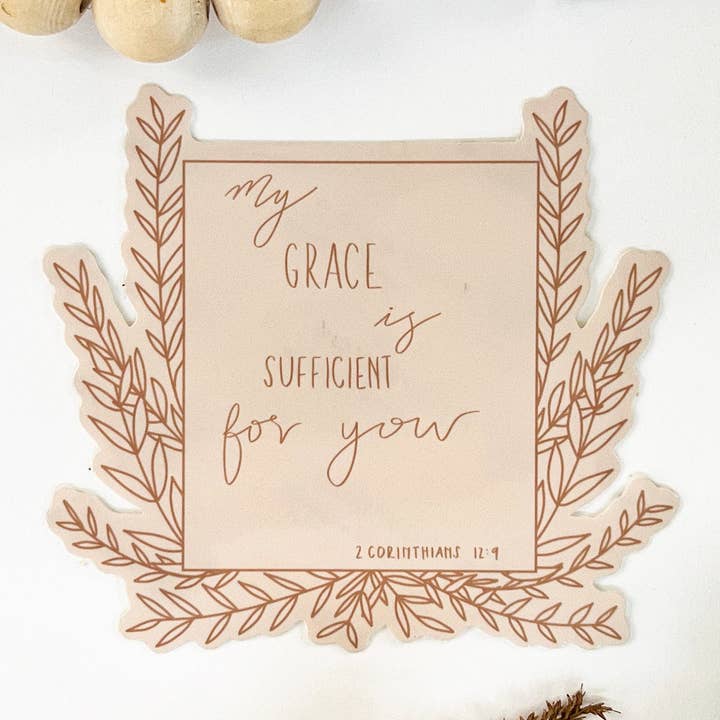 My
GRACE
is
SUFFICIENT
for you
2 CORINTHIANS 12:9